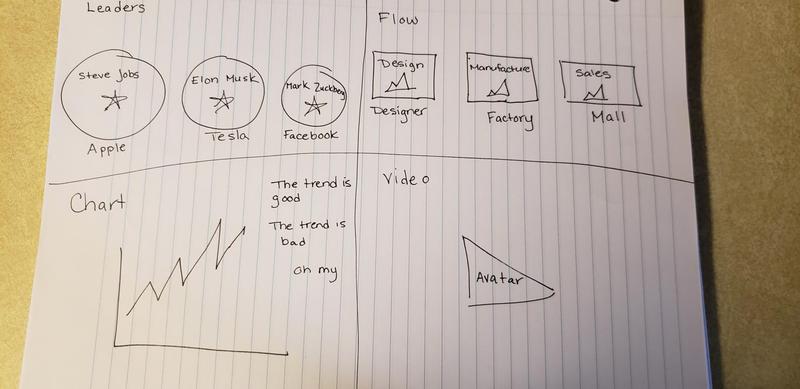 Leaders
Steve Jobs
Apple
Elon Musk
Tesla
Mark Zuckberg
Facebook
Flow
Design
Designer
Manufacture
Factory
Sales
Mall
Chart
The trend is
good
The trend is
bad
oh my
Video
Avatar